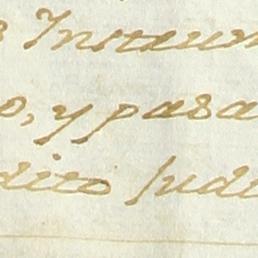 Instrum
o, y para
dito Judi